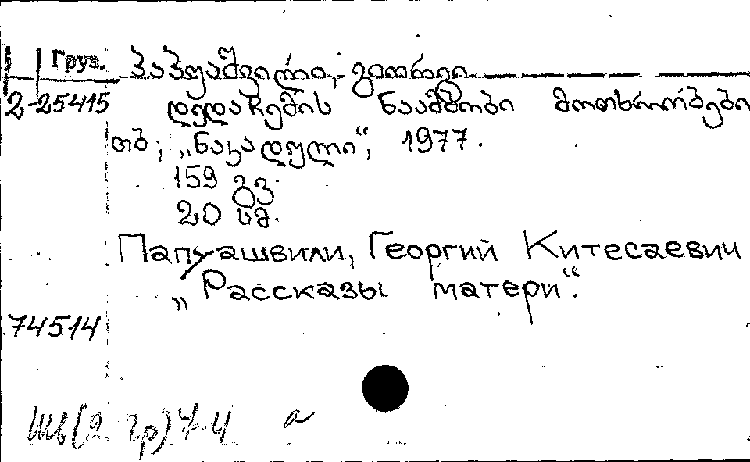 Груз. პაპუაშვილი, გიორგი
2-25415 დედაჩემის ნაამბობი მოთხრობები
თბ; „ნაკადული“, 1977.
159 გვ.
20 კპ.
Папуашвили, Георгий Китесаевич
„Рассказы матери“.
74514
Шь(2 гр)7-4 а